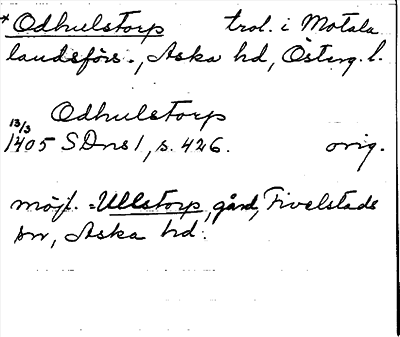 * Odhulstorp trol. i Motala
landsförs., Aska hd, Österg. l.
Odhulstorp
13/3
1405 SDns 1, s. 426. orig.
möjl. = Ullstorp, gård, Fivelstads
sn, Aska hd.